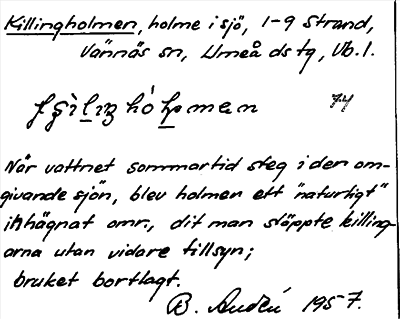 Killingholmen, holme i sjö, 1-9 Strand,
Vännäs sn, Umeå ds tg, Vb. l.
74
När vattnet sommartid steg i den om-
givande sjön, blev holmen ett "naturligt"
inhägnat omr., dit man släppte killing-
arna utan vidare tillsyn;
bruket bortlagt.
B. Audén 1957.